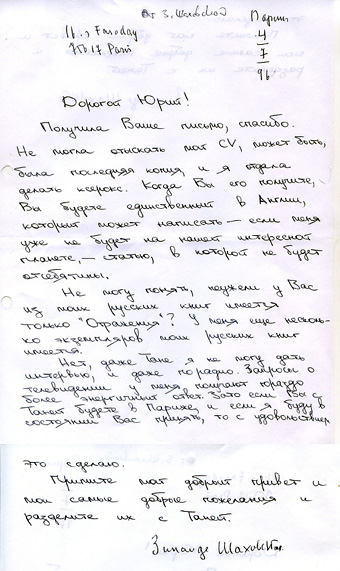 От З. Шаховской
Париж
11, rue Faraday
75017 Paris
4
7
96
Дорогой Юрий!
Получила Ваше письмо, спасибо.
Не могла отыскать мой CV, может быть,
была последняя копия, и я отдала
делать ксерокс. Когда Вы его получите,
Вы будете единственный в Англии,
который может написать — если меня
уже не будет на нашей интересной
планете, — статью, в которой не будет
отсебятины.
Не могу понять, неужели у Вас
из моих русских книг имеется
только "Отражения"? У меня еще несколь-
ко экземпляров моих русских книг
имеется.
Нет, даже Тане я не могу дать
интервью, и даже по радио. Запросы о
телевидении у меня получают гораздо
более энергичный ответ. Зато если Вы с
Таней будете в Париже, и если я буду в
состоянии Вас принять, то с удовольствием
это сделаю.
Примите мой добрый привет и
мои самые добрые пожелания и
разделите их с Таней.
Зинаида Шаховская